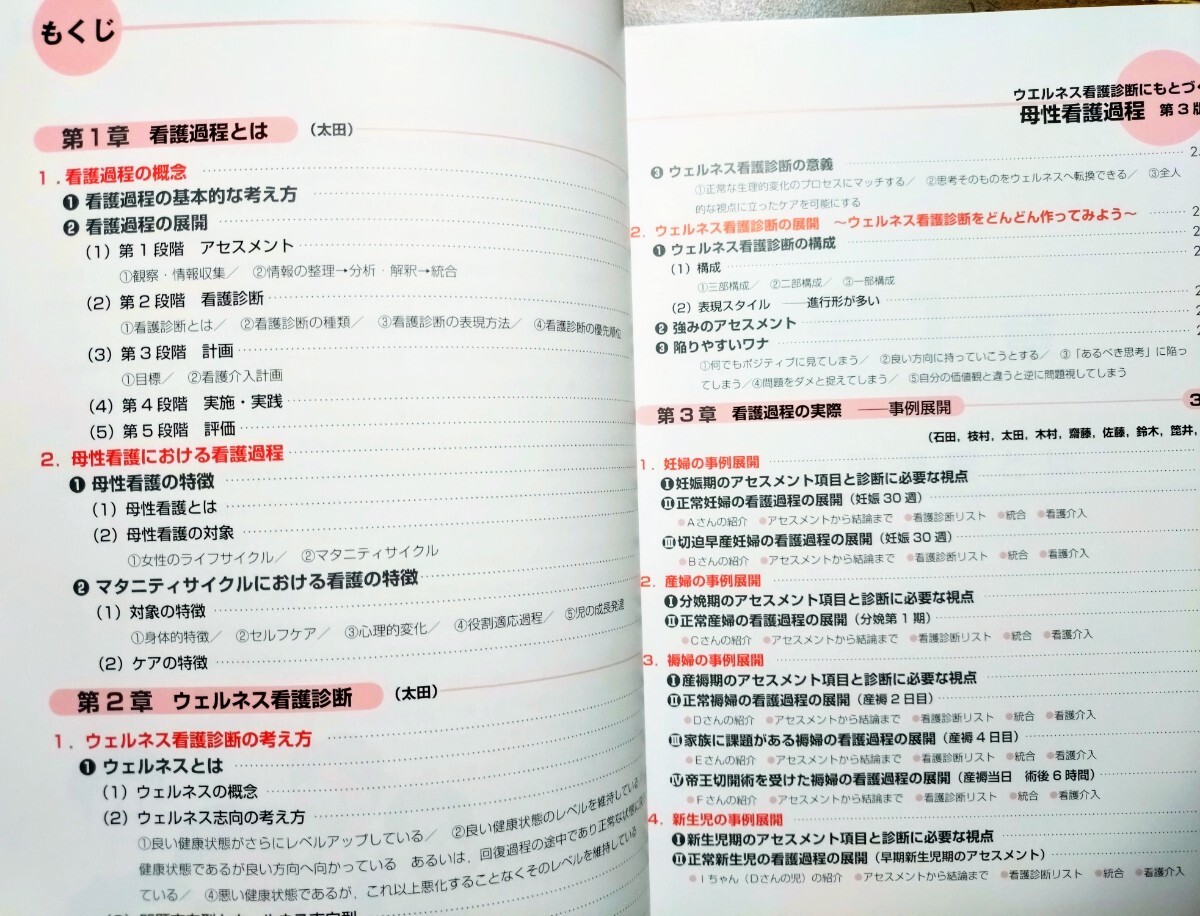 もくじ
第1章 看護過程とは (太田)
1.看護過程の概念
❶ 看護過程の基本的な考え方
❷ 看護過程の展開
(1) 第1段階 アセスメント
①観察・情報収集／ ②情報の整理→分析・解釈→統合
(2) 第2段階 看護診断
①看護診断とは／ ②看護診断の種類／ ③看護診断の表現方法／ ④看護診断の優先順位
(3) 第3段階 計画
①目標／ ②看護介入計画
(4) 第4段階 実施・実践
(5) 第5段階 評価
2. 母性看護における看護過程
❶ 母性看護の特徴
(1) 母性看護とは
(2) 母性看護の対象
①女性のライフサイクル／ ②マタニティサイクル
❷ マタニティサイクルにおける看護の特徴
(1) 対象の特徴
①身体的特徴／ ②セルフケア／ ③心理的変化／ ④役割適応過程／ ⑤児の成長発達
(2) ケアの特徴
第2章 ウェルネス看護診断 (太田)
1. ウェルネス看護診断の考え方
❶ ウェルネスとは
(1) ウェルネスの概念
(2) ウェルネス志向の考え方
①良い健康状態がさらにレベルアップしている／ ②良い健康状態のレベルを維持している
健康状態であるが良い方向へ向かっている あるいは，回復過程の途中であり正常な状態に
ている／ ④悪い健康状態であるが，これ以上悪化することなくそのレベルを維持している
ウエルネス看護診断にもとづく
母性看護過程 第3版
❸ ウェルネス看護診断の意義
①正常な生理的変化のプロセスにマッチする／ ②思考そのものをウェルネスへ転換できる／ ③全人
的な視点に立ったケアを可能にする
2. ウェルネス看護診断の展開 ～ウェルネス看護診断をどんどん作ってみよう～
❶ ウェルネス看護診断の構成
(1) 構成
①三部構成／ ②二部構成／ ③一部構成
(2) 表現スタイル ――進行形が多い
❷ 強みのアセスメント
❸ 陥りやすいワナ
①何でもポジティブに見てしまう／ ②良い方向に持っていこうとする／ ③「あるべき思考」に陥っ
てしまう／④問題をダメと捉えてしまう／ ⑤自分の価値観と違うと逆に問題視してしまう
第3章 看護過程の実際 ――事例展開 3
(石田，枝村，太田，木村，齋藤，佐藤，鈴木，箆井，
1. 妊婦の事例展開
Ⅰ妊娠期のアセスメント項目と診断に必要な視点
Ⅱ正常妊婦の看護過程の展開 (妊娠30週)
●Aさんの紹介 ●アセスメントから結論まで ●看護診断リスト ●統合 ●看護介入
Ⅲ切迫早産妊婦の看護過程の展開 (妊娠30週)
●Bさんの紹介 ●アセスメントから結論まで ●看護診断リスト ●統合 ●看護介入
2. 産婦の事例展開
Ⅰ分娩期のアセスメント項目と診断に必要な視点
Ⅱ正常産婦の看護過程の展開 (分娩第1期)
●Cさんの紹介 ●アセスメントから結論まで ●看護診断リスト ●統合 ●看護介入
3. 褥婦の事例展開
Ⅰ産褥期のアセスメント項目と診断に必要な視点
Ⅱ正常褥婦の看護過程の展開 (産褥2日目)
●Dさんの紹介 ●アセスメントから結論まで ●看護診断リスト ●統合 ●看護介入
Ⅲ家族に課題がある褥婦の看護過程の展開 (産褥4日目)
●Eさんの紹介 ●アセスメントから結論まで ●看護診断リスト ●統合 ●看護介入
Ⅳ帝王切開術を受けた褥婦の看護過程の展開 (産褥当日 術後6時間)
●Fさんの紹介 ●アセスメントから結論まで ●看護診断リスト ●統合 ●看護介入
4. 新生児の事例展開
Ⅰ新生児期のアセスメント項目と診断に必要な視点
Ⅱ正常新生児の看護過程の展開 (早期新生児期のアセスメント)
●Iちゃん (Dさんの児) の紹介 ●アセスメントから結論まで ●看護診断リスト ●統合 ●看護介入